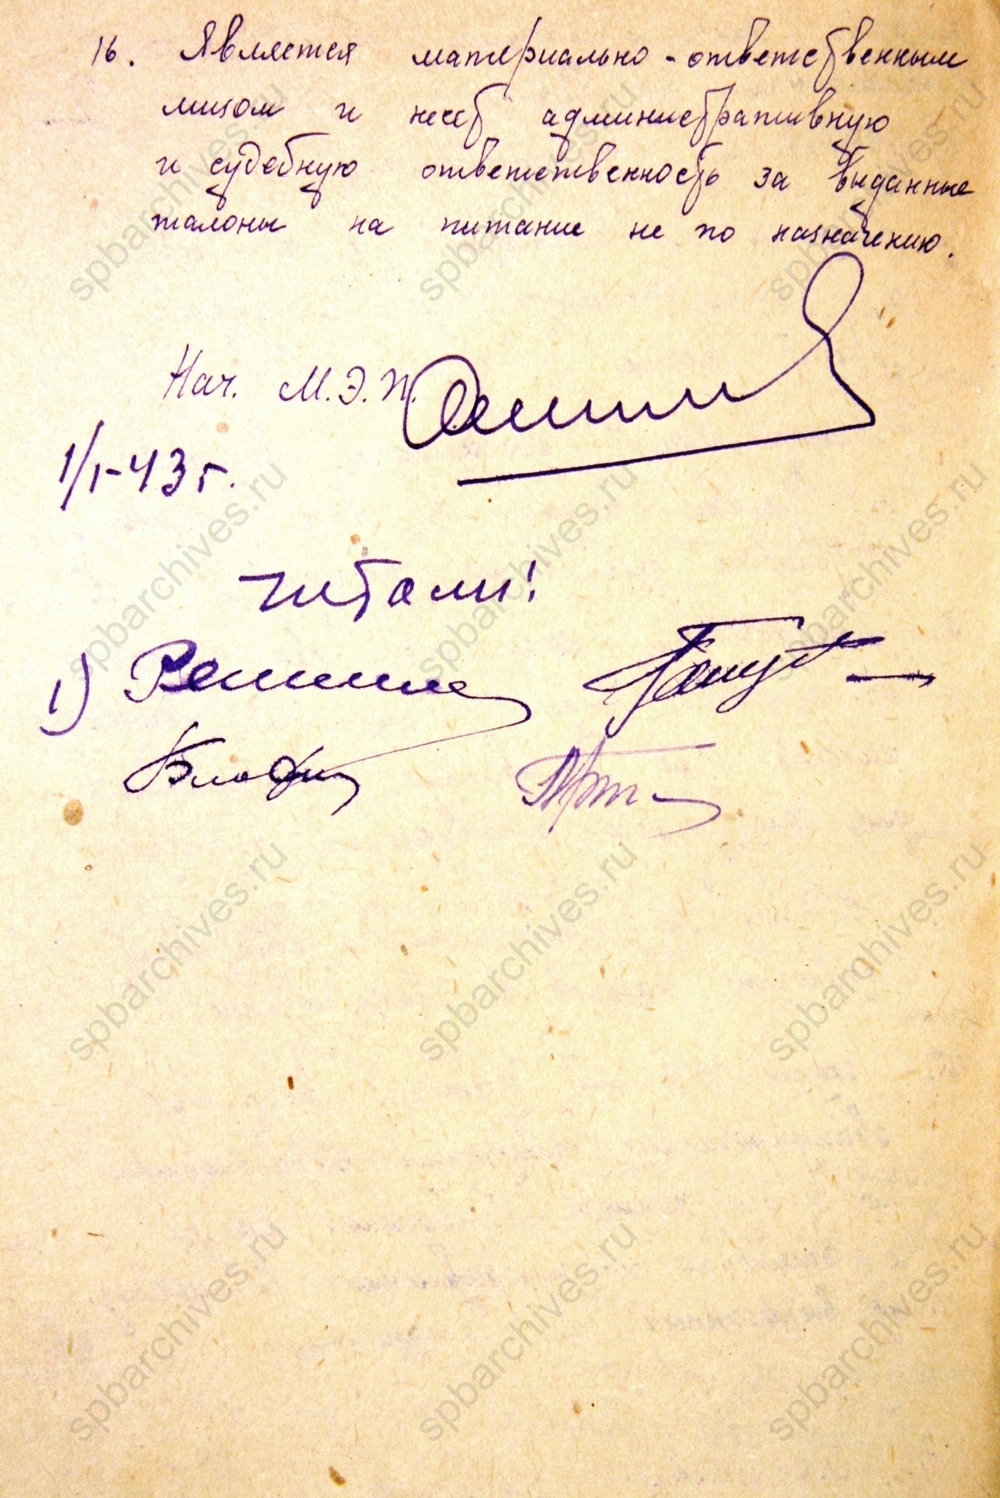 16. Является материально-ответственным
лицом и несёт административную
и судебную ответственность за выданные
талоны на питание не по назначению.
Нач. М.Э.П.
1/I-43 г.
Читали!
1)
spbarchives.ru